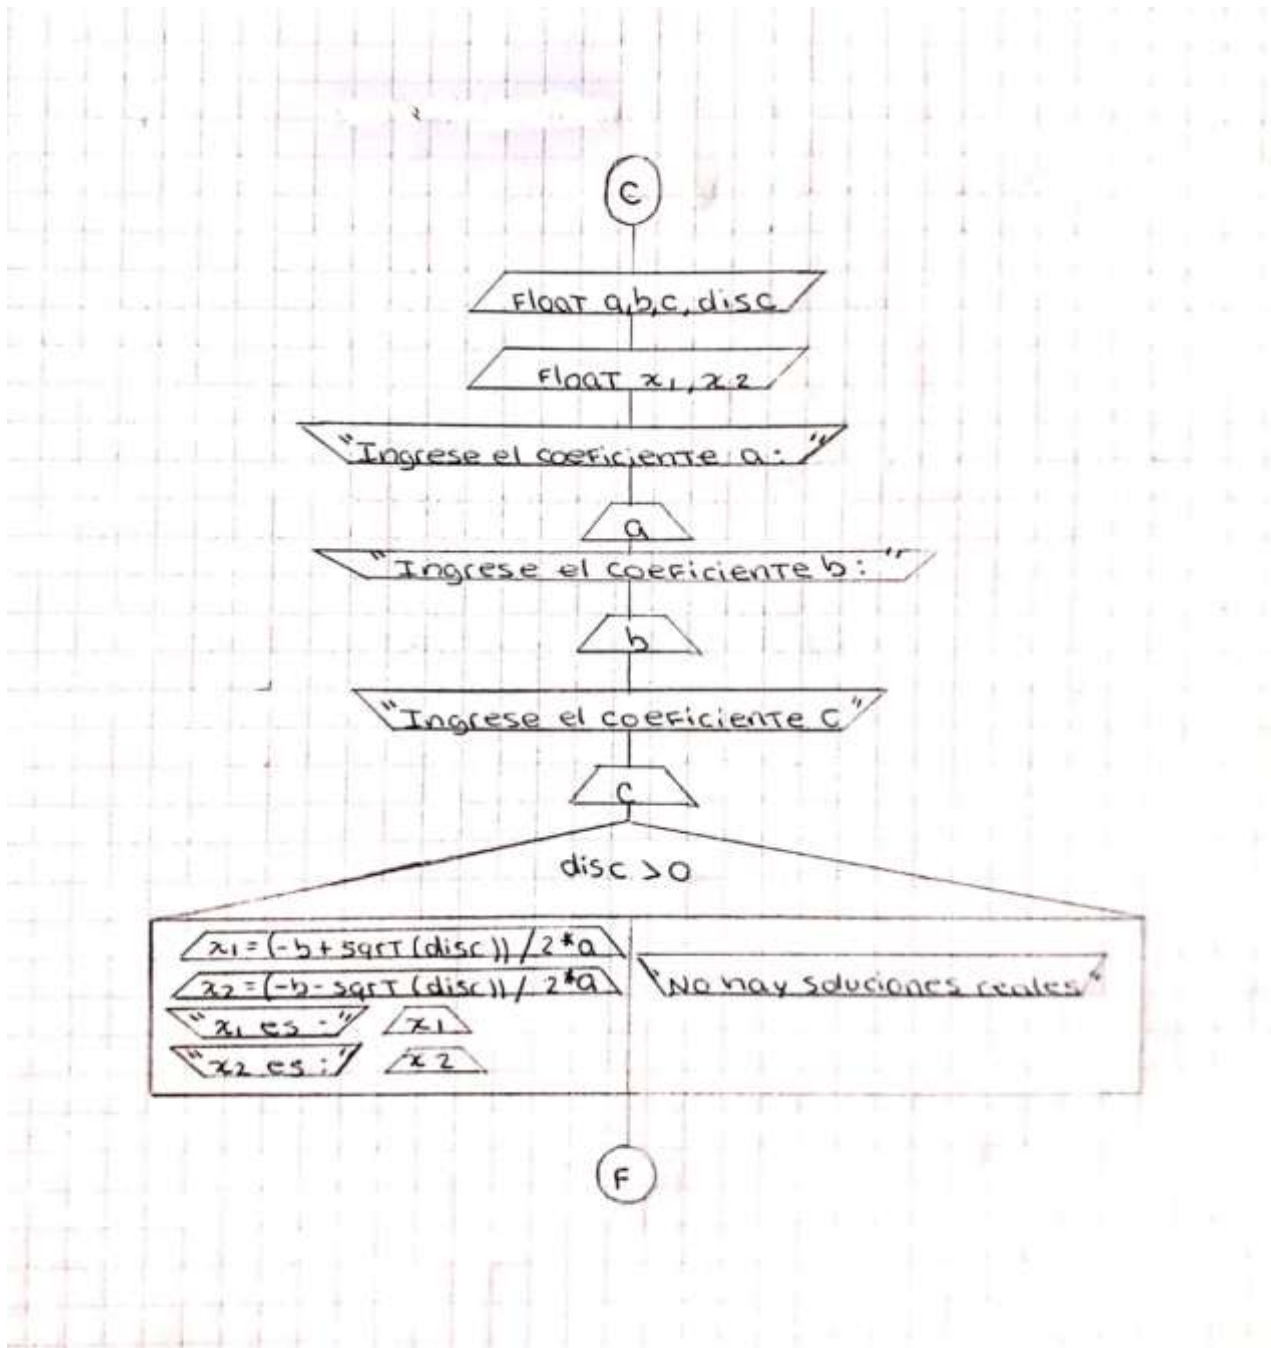 C
Float a,b,c, disc
Float x1, x2
"Ingrese el coeficiente a: "
a
"Ingrese el coeficiente b: "
b
"Ingrese el coeficiente C"
C
disc >0
x1=(-b+sqrt(disc))/2*a
x2=(-b-sqrt(disc))/2*a
"No hay soluciones reales"
"x1 es:" x1
"x2 es:" x2
F